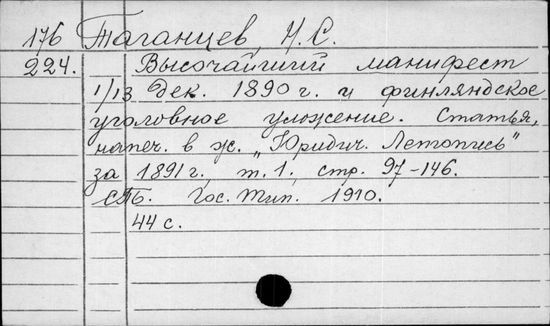 176 Таганцев, Н. С.
224. Высочайший манифест
1/13 Дек. 1890 г. и финляндское
уголовное уложение. Статья,
напеч. в ж. „Юридич. Летопись"
за 1891 г., т. 1., стр. 97-146.
СПб. Гос. Тип. 1910.
44 с.